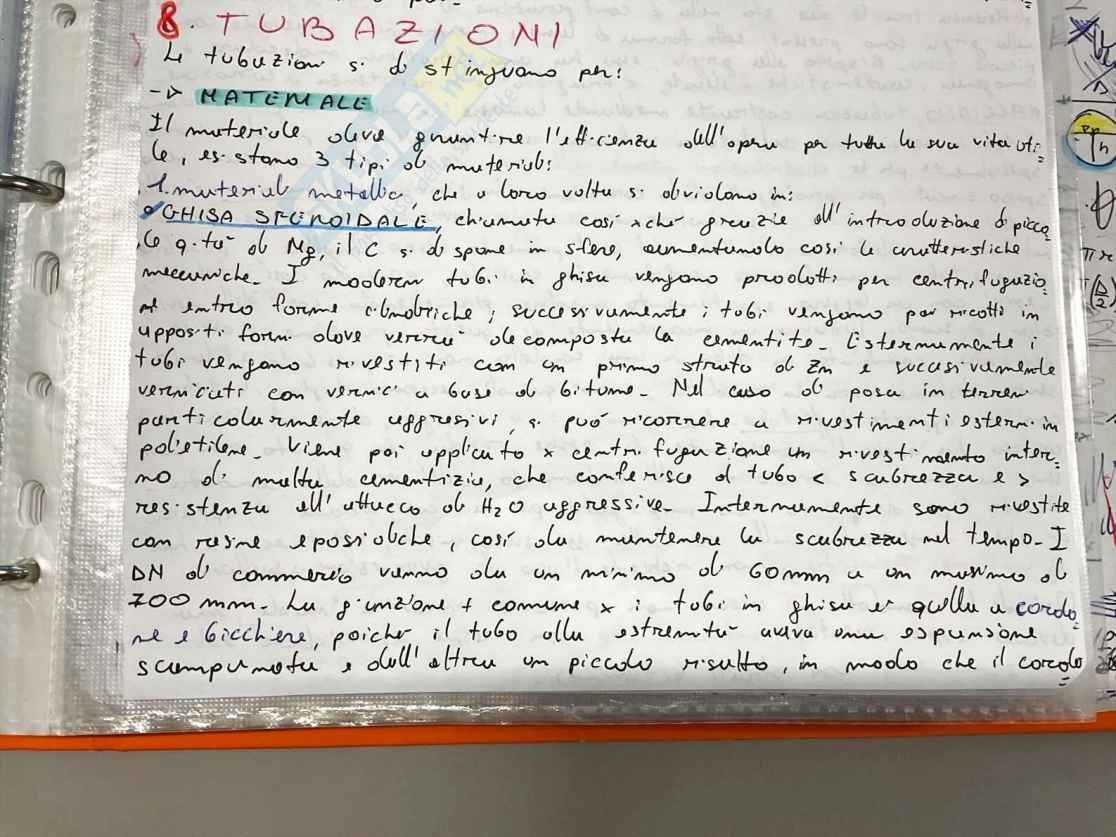 8. TUBAZIONI
Le tubazioni si distinguono per:
-> MATERIALE
Il materiale deve garantire l'efficienza dell'opera per tutta la sua vita uti=
le, esistono 3 tipi di materiali:
1. materiali metallici, che a loro volta si dividono in:
GHISA SFEROIDALE, chiamata così xché grazie all'introduzione di picco
le q.tà di Mg, il C si dispone in sfere, aumentando così le caratteristiche
meccaniche. I moderni tubi in ghisa vengono prodotti per centrifugazio
ne entro forme cilindriche; successivamente i tubi vengono poi ricotti in
appositi forni dove verrà decomposta la cementite. Esternamente i
tubi vengono rivestiti con un primo strato di Zn e succesivamente
verniciati con vernici a base di bitume. Nel caso di posa in terreni
particolarmente aggresivi, si può ricorrere a rivestimenti esterni in
polietilene. Viene poi applicato x centrifugazione un rivestimento inter=
no di malta cementizia, che conferisce al tubo < scabrezza e >
resistenza all'attacco di H2O aggressive. Internamente sono rivestite
con resine epossidiche, così da mantenere la scabrezza nel tempo. I
DN di commercio vanno da un minimo di 60mm a un massimo di
700 mm. La giunzione + comune x i tubi in ghisa è quella a cordo
ne e bicchiere, poiché il tubo alla estremità aveva una espansione
scampanata e dall'altra un piccolo risalto, in modo che il cordo